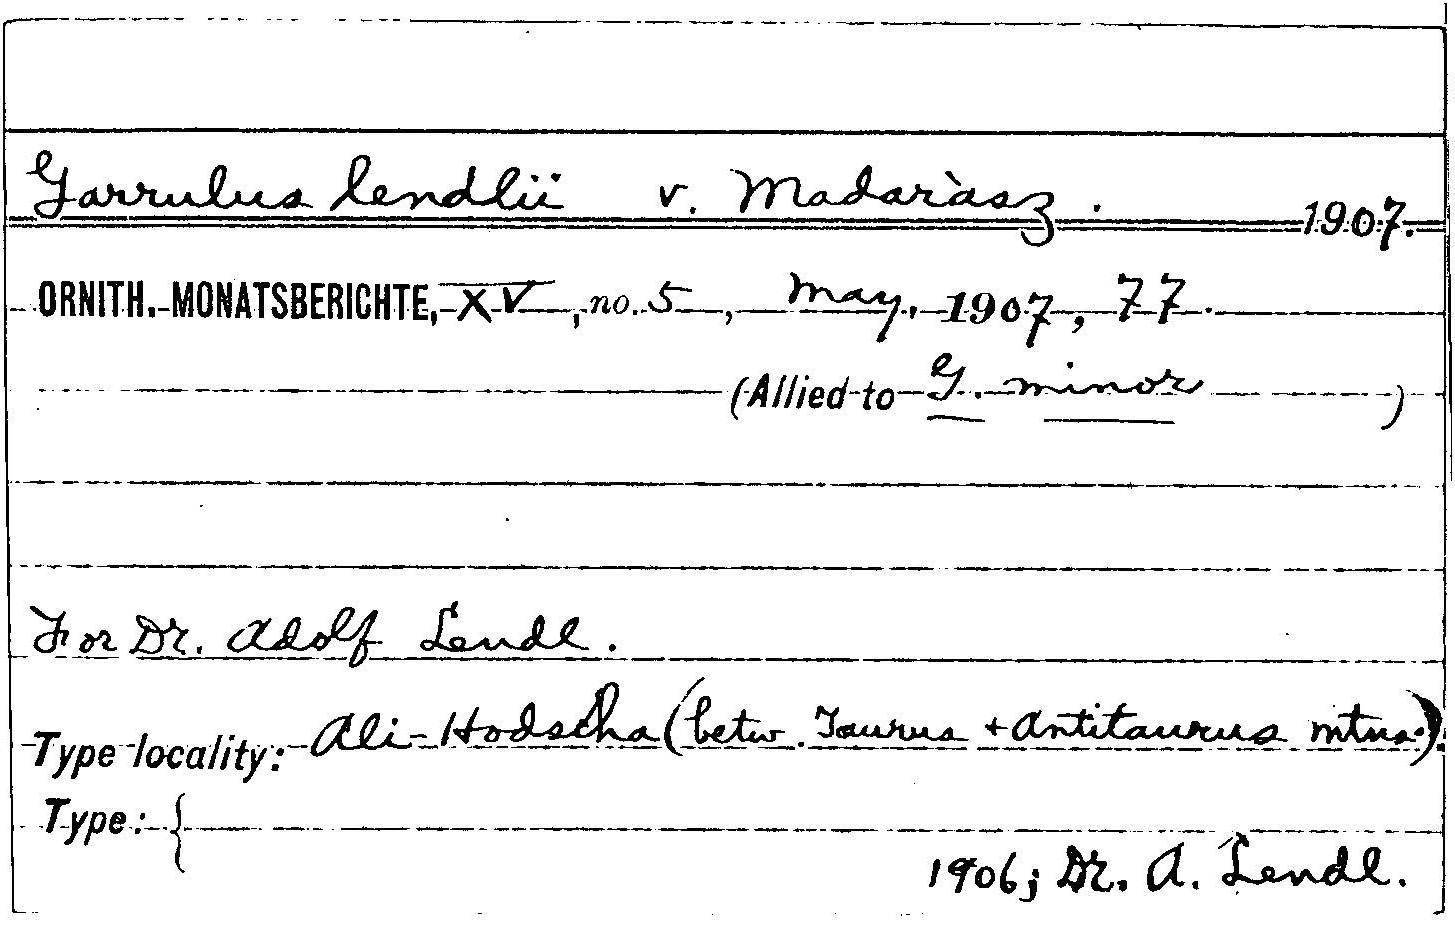 Garrulus lendlii v. Madaràsz. 1907.
ORNITH. MONATSBERICHTE, XV, no. 5, May, 1907, 77.
(Allied to G. minor )
For Dr. Adolf Lendl.
Type locality: Ali-Hodscha (betw. Taurus + Antitaurus mtns.).
Type: {
1906; Dr. A. Lendl.